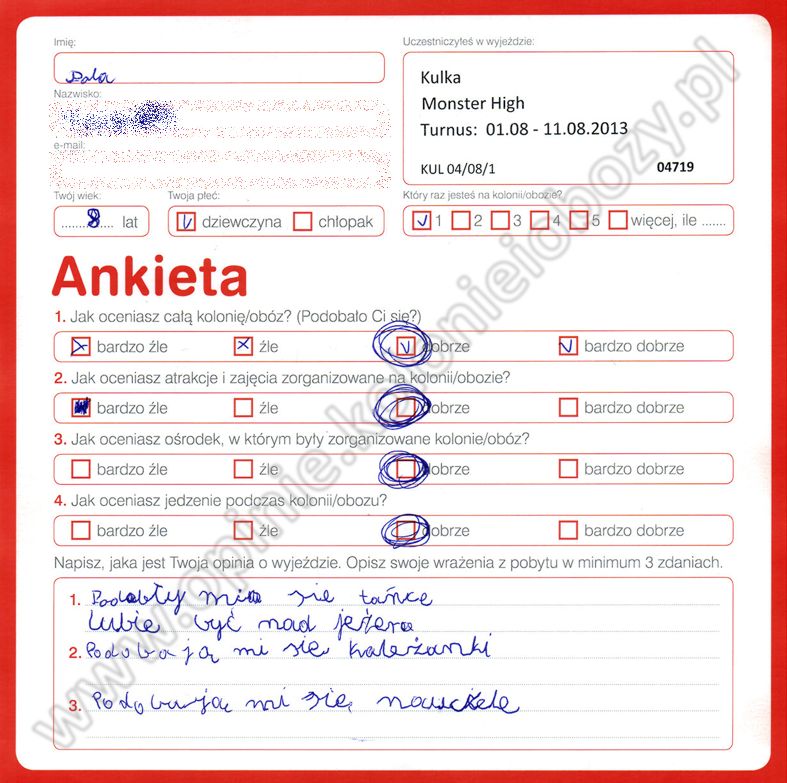 Imię:
Uczestniczyłeś w wyjeździe:
Kulka
Nazwisko:
Monster High
Turnus: 01.08 - 11.08.2013
e-mail:
KUL 04/08/1 04719
Twój wiek:
Twoja płeć:
Który raz jesteś na kolonii/obozie?
8 lat
dziewczyna chłopak
1 2 3 4 5 więcej, ile .......
Ankieta
1. Jak oceniasz całą kolonię/obóz? (Podobało Ci się?)
bardzo źle źle dobrze bardzo dobrze
2. Jak oceniasz atrakcje i zajęcia zorganizowane na kolonii/obozie?
bardzo źle źle dobrze bardzo dobrze
3. Jak oceniasz ośrodek, w którym były zorganizowane kolonie/obóz?
bardzo źle źle dobrze bardzo dobrze
4. Jak oceniasz jedzenie podczas kolonii/obozu?
bardzo źle źle dobrze bardzo dobrze
Napisz, jaka jest Twoja opinia o wyjeździe. Opisz swoje wrażenia z pobytu w minimum 3 zdaniach.
1. Podobały mi się tańce
lubie być nad jeziero
2. Podobają mi się koleżanki
3. Podobują mi się
www.opinie.kolonieiobozy.pl